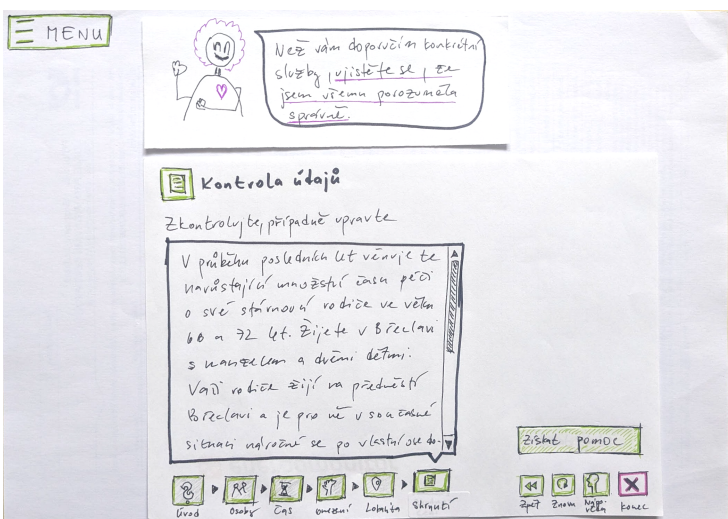 MENU
Než vám doporučím konkrétní
služby, ujistěte se, že
jsem všemu porozuměla
správně.
Kontrola údajů
Zkontrolujte, případně upravte
V průběhu posledních let věnujete
narůstající množství času péči
o své stárnoucí rodiče ve věku
68 a 72 let. Žijete v Břeclavi
s manželem a dvěmi dětmi.
Vaši rodiče žijí na předměstí
Břeclavi a je pro ně v současné
situaci náročné se po vlastní ose do-
Získat pomoc
Úvod Osoby Čas Omezení Lokalita Shrnutí
Zpět Znovu Nápověda Konec